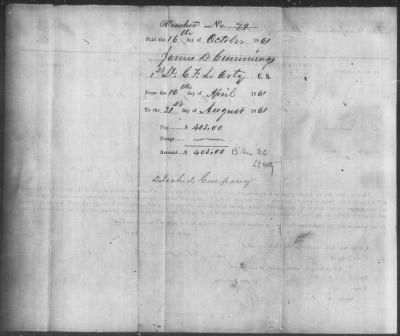 Voucher No. 74
Paid the 16th day of October 1861
James D Cummings
1st Lt. C. F. L. Arty C.S.
From the 16th day of April 1861
To the 31st day of August 1861
Pay $ 405.00
Forage
Amount $ 405.00 13 Bn NC
Lt Arty
Company